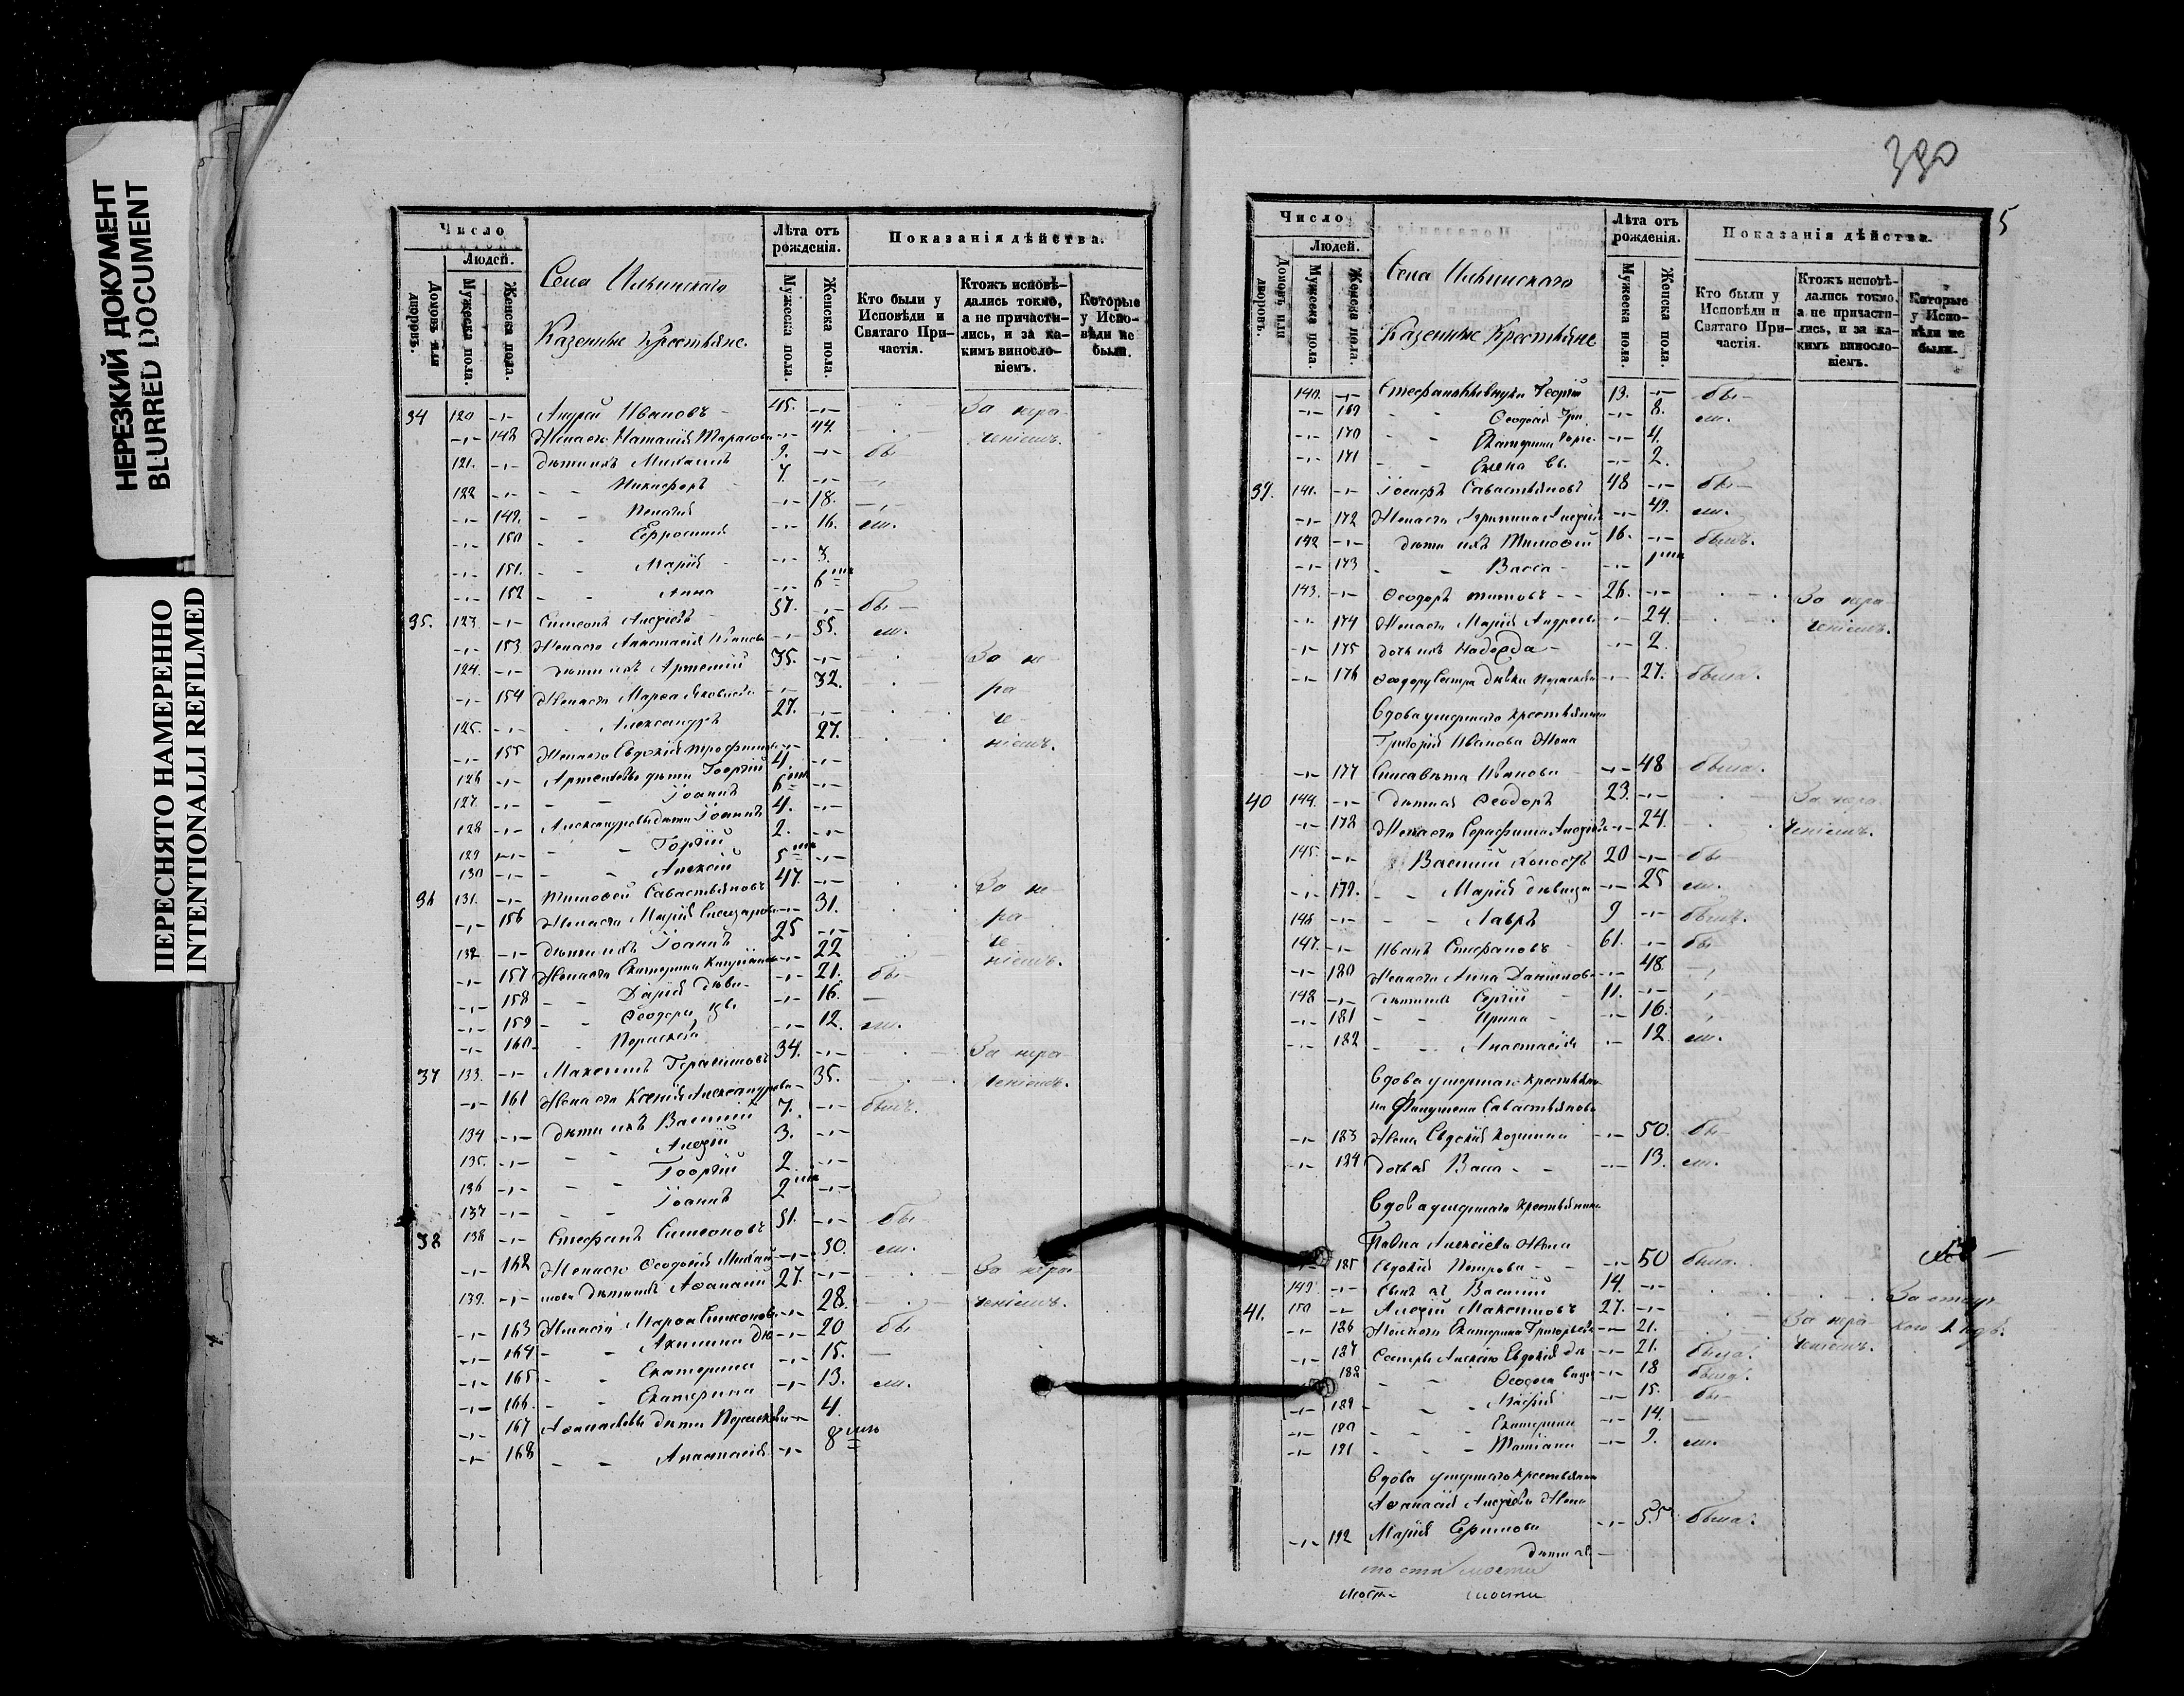 НЕРЕЗКИЙ ДОКУМЕНТ
BLURRED DOCUMENT
ПЕРЕСНЯТО НАМЕРЕННО
INTENTIONALLI REFILMED
Число
Людей.
Домовъ или дворовъ.
Мужеска пола.
Женска пола.
Села Ильинскаго
Казенные Крестьяне.
Лѣта отъ рожденія.
Мужеска пола.
Женска пола.
Показанія дѣйства.
Кто были у Исповѣди и Святаго Причастія.
Ктожъ исповѣдались токмо, а не причастились, и за какимъ винословіемъ.
Которые у Исповѣди не были.
34 120 -,- Андрей Ивановъ 45. -,- За нера-
-,- 148 Жена его Наталія Тарасова -,- 44. ченіемъ.
121. -,- Дѣти ихъ Михаилъ 9. -,- бы
122 -,- Никифоръ 7. -,-
-,- 149. Пелагія -,- 18.
-,- 150 Ефросинія -,- 16. ли.
-,- 151. Марія -,- 3.
-,- 152 Анна -,- 6
35. 123. -,- Симеонъ Андреевъ 57. -,- бы
-,- 153 Жена его Анастасія Иванова -,- 55. ли.
124. -,- Дѣти ихъ Артемій 35. -,- За не-
-,- 154 Жена его Марѳа Яковлева -,- 32. ра-
125. -,- Александръ 27. -,- че-
-,- 155 Жена его Евдокія Трофимова -,- 27. ніемъ.
126 -,- Артеміевы дѣти Георгій 4. -,-
127. -,- Іоаннъ 6 -,-
128 -,- Александровы дѣти Іоаннъ 4. -,-
129 -,- Георгій 2. -,-
130 -,- Алексій 5 -,-
36 131. -,- Тимофей Савастьяновъ 47. -,- За не-
-,- 156 Жена его Марія -,- 31. ра-
132 -,- Дѣти ихъ Іоаннъ 25 -,- че-
-,- 157 Жена его Екатерина -,- 22 ніемъ.
-,- 158 Дарія дѣви- -,- 21. бы-
-,- 159 Ѳеодора цы -,- 16.
-,- 160 Параскева -,- 12. ли.
37 133. -,- Максимъ Герасимовъ 34. -,- За нера-
-,- 161 Жена его Ксенія Александрова -,- 35. ченіемъ.
134 -,- Дѣти ихъ Василій 7. -,- былъ.
135. -,- Андрей 3. -,-
136 -,- Георгій 2 -,-
137 -,- Іоаннъ 2 -,-
38 138 -,- Стефанъ Симеоновъ 51. -,- бы-
-,- 162 Жена его Ѳеодосія Михай- -,- 50. ли.
139. -,- лова Дѣти ихъ Аѳанасій 27. -,- За нера-
-,- 163 Жена его Марѳа Симеонова -,- 28. ченіемъ.
-,- 164 Акилина дѣ- -,- 20 бы
-,- 165 Екатерина -,- 15.
-,- 166. Екатерина -,- 13. ли.
-,- 167 Аѳанасьевы дѣти Параскева -,- 4.
-,- 168 Анастасія -,- 8
390
5
Число
Людей.
Домовъ или дворовъ.
Мужеска пола.
Женска пола.
Села Ильинскаго
Казенные Крестьяне
Лѣта отъ рожденія.
Мужеска пола.
Женска пола.
Показанія дѣйства.
Кто были у Исповѣди и Святаго Причастія.
Ктожъ исповѣдались токмо, а не причастились, и за какимъ винословіемъ.
Которые у Исповѣди не были.
140. -,- Стефановы внуки Георгій 13. -,- бы-
-,- 169 Ѳеодосія -,- 8. ли.
-,- 170 Екатерина -,- 4.
-,- 171 Елена -,- 2.
39. 141. -,- Іосифъ Савастьяновъ 48 -,- бы-
-,- 172 Жена его Агрипина Андреева -,- 49. ли.
142 -,- Дѣти ихъ Тимофей 16. -,- былъ.
-,- 173 Васса -,- 1
143. -,- Ѳеодоръ Титовъ 26. -,- За нера-
-,- 174 Жена его Марія Андреева -,- 24. ченіемъ.
-,- 175 Дочь ихъ Надежда -,- 2.
-,- 176 Ѳеодору Сестра дѣвка Параскева -,- 27. была.
Вдова умершаго крестьянина
Григорія Иванова Жена
-,- 177 Елисавета Иванова -,- 48 была.
40 144. -,- Дѣти ея Ѳеодоръ 23. -,- За нера-
-,- 178 Жена его Серафима Андреева -,- 24. ченіемъ.
145. -,- Василій холостъ 20 -,- бы-
-,- 179. Марія дѣвица -,- 25 ли.
146 -,- Лавръ 9 -,- былъ.
147. -,- Иванъ Стефановъ 61. -,- бы
-,- 180 Жена его Анна Данилова -,- 48.
148 -,- Дѣти ихъ Сергій 11. -,-
-,- 181 Ирина -,- 16.
-,- 182 Анастасія -,- 12. ли.
Вдова умершаго крестьяни-
на Савастьянова
-,- 183 Жена Евдокія Козмина -,- 50. бы-
-,- 184 Дочь ея -,- 13. ли.
Вдова умершаго крестьянина
Павла Алексіева Жена
-,- 185 Евдокія Петрова -,- 50 была.
149. -,- Сынъ ея Василій 14. -,- За отлуч-
41. 150 -,- Андрей Максимовъ 27. -,- За нера-
-,- 186 Жена его Екатерина Григорьева -,- 21. ченіемъ.
-,- 187 Сестры Евдокія дѣ- -,- 21. была.
-,- 188 Ѳеодора вица -,- 18 была.
-,- 189 Марія -,- 15. бы-
-,- 190 Екатерина -,- 14.
-,- 191 Татіана -,- 9. ли.
Вдова умершаго крестьянина
Аѳанасія Андреева Жена
-,- 192 Марія Ефимова -,- 55 была.
Дѣти ея